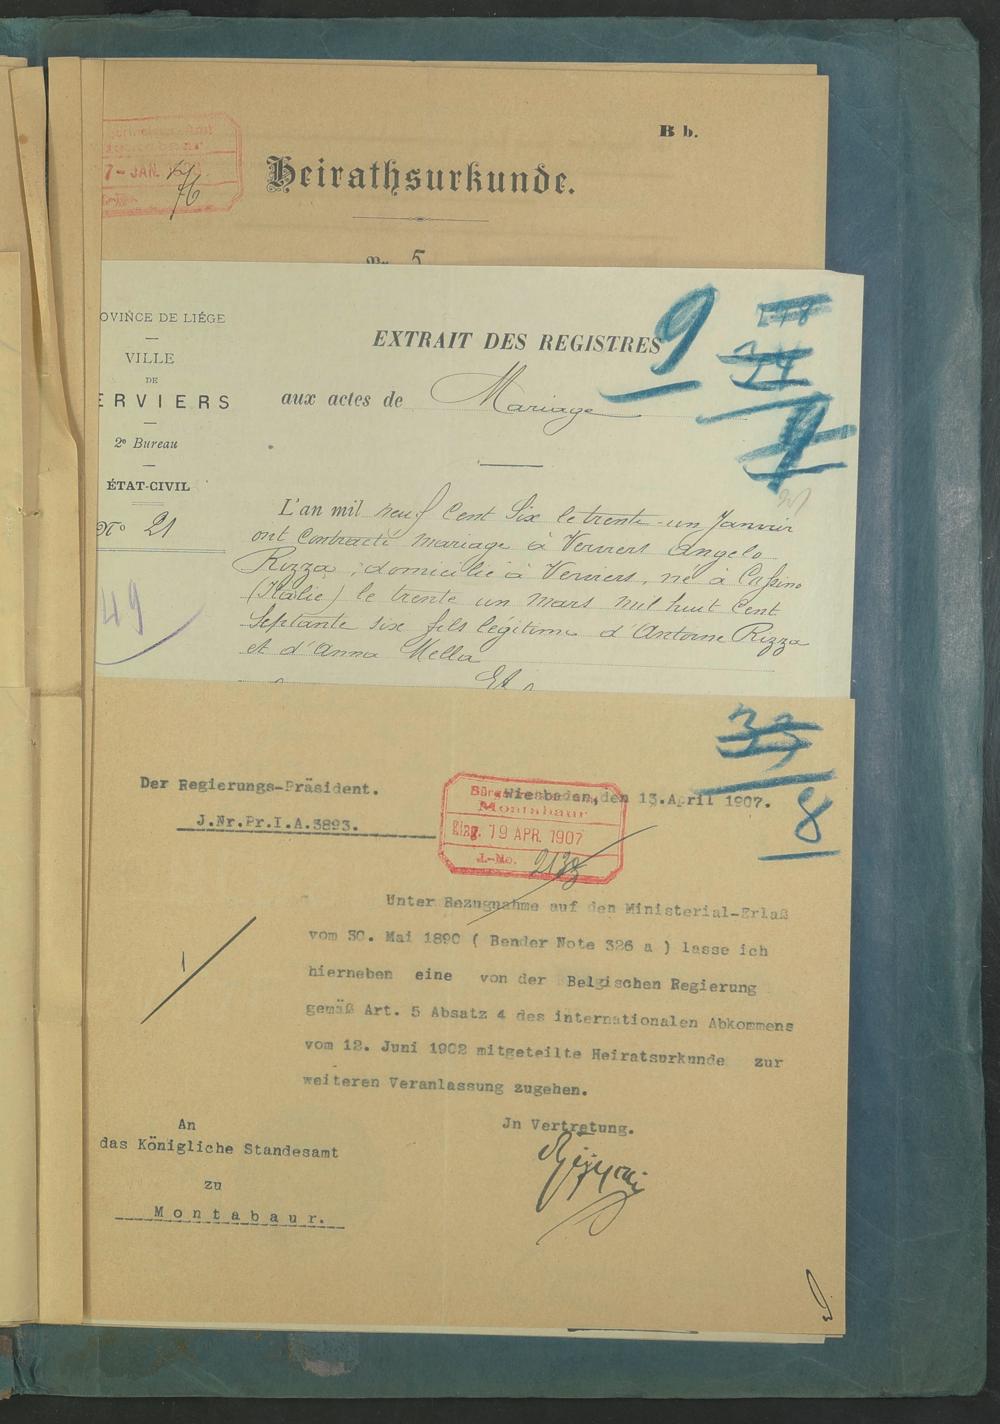 B b.
7- JAN.
76
Heirathsurkunde.
5
OVINCE DE LIÉGE
VILLE
DE
ERVIERS
2e Bureau
ÉTAT-CIVIL
No 21
49
EXTRAIT DES REGISTRES
aux actes de Mariage
9
L'an mil neuf Cent Six le trente-un Janvier
ont Contracté mariage à Verviers Angelo
Rizza, domicilié à Verviers, né à Cassino
(Italie) le trente un mars mil huit Cent
Septante six fils légitime d'Antoine Rizza
et d'Anna Mella
Et
8
Der Regierungs-Präsident.
J.Nr.Pr.I.A.3893.
Wiesbaden, den 13.April 1907.
Montabaur
Eing. 19 APR. 1907
J.-No.
Unter Bezugnahme auf den Ministerial-Erlaß
vom 30. Mai 1890 ( Bender Note 326 a ) lasse ich
hierneben eine von der Belgischen Regierung
gemäß Art. 5 Absatz 4 des internationalen Abkommens
vom 12. Juni 1902 mitgeteilte Heiratsurkunde zur
weiteren Veranlassung zugehen.
Jn Vertretung.
An
das Königliche Standesamt
zu
Montabaur.